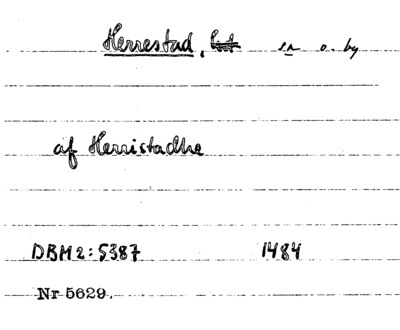 Herrestad, sn o. by
af Herristadhe
DBM2:5387 1484
Nr 5629.